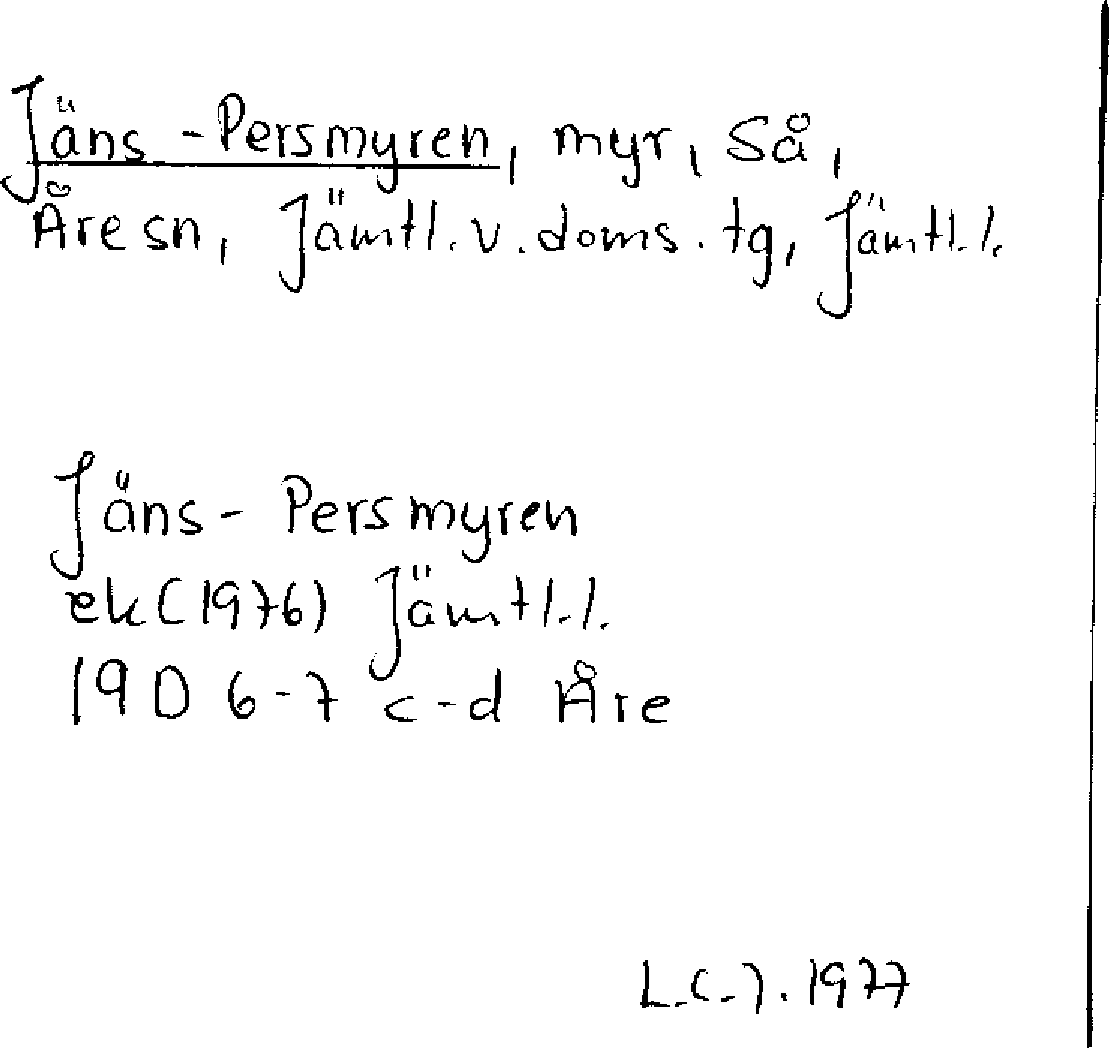 Jäns-Persmyren, myr, Så,
Åre sn, Jämtl. v. doms. tg, Jämtl. l.
Jäns-Persmyren
ek (1976) Jämtl. l.
19 D 6-7 c-d Åre
L.C.J. 1977